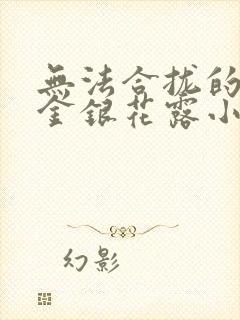 無法合拢的
金銀花露小
幻影